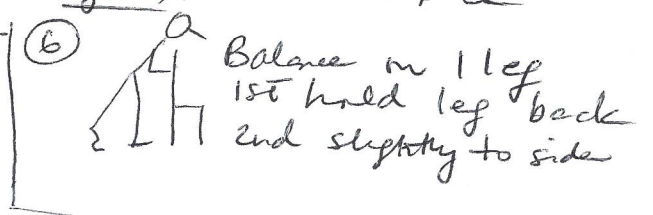 6
Balance on 1 leg
1st hold leg back
2nd slightly to side